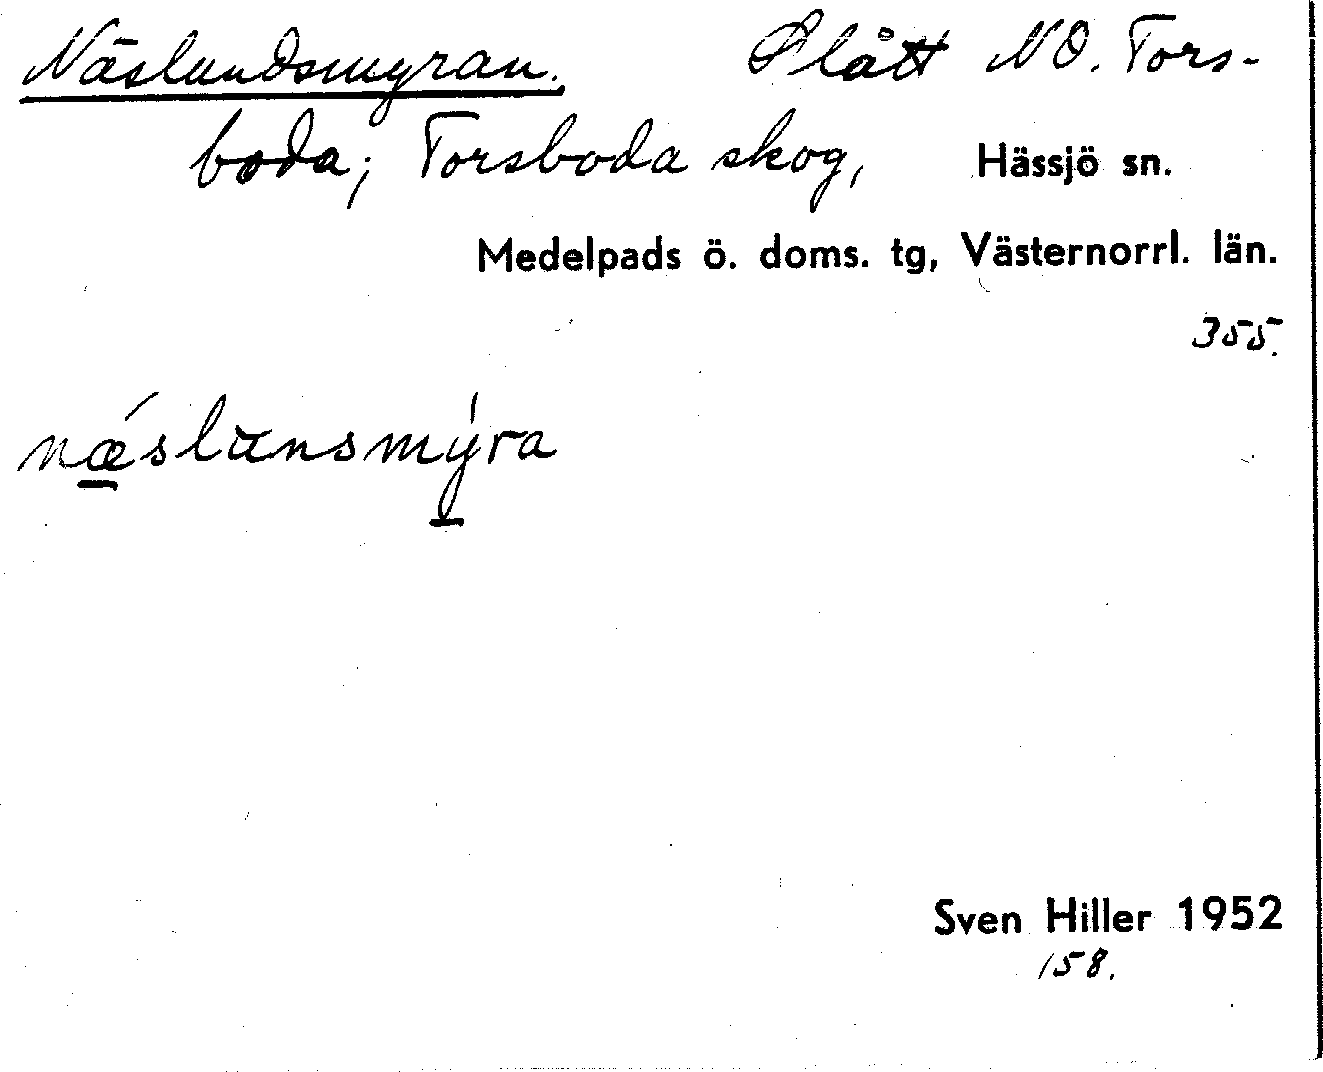 Näslundsmyran. Slått NO. Tors-
boda; Torsboda skog, Hässjö sn.
Medelpads ö. doms. tg, Västernorrl. län.
355.
nǽslunsmýra
Sven Hiller 1952
158.